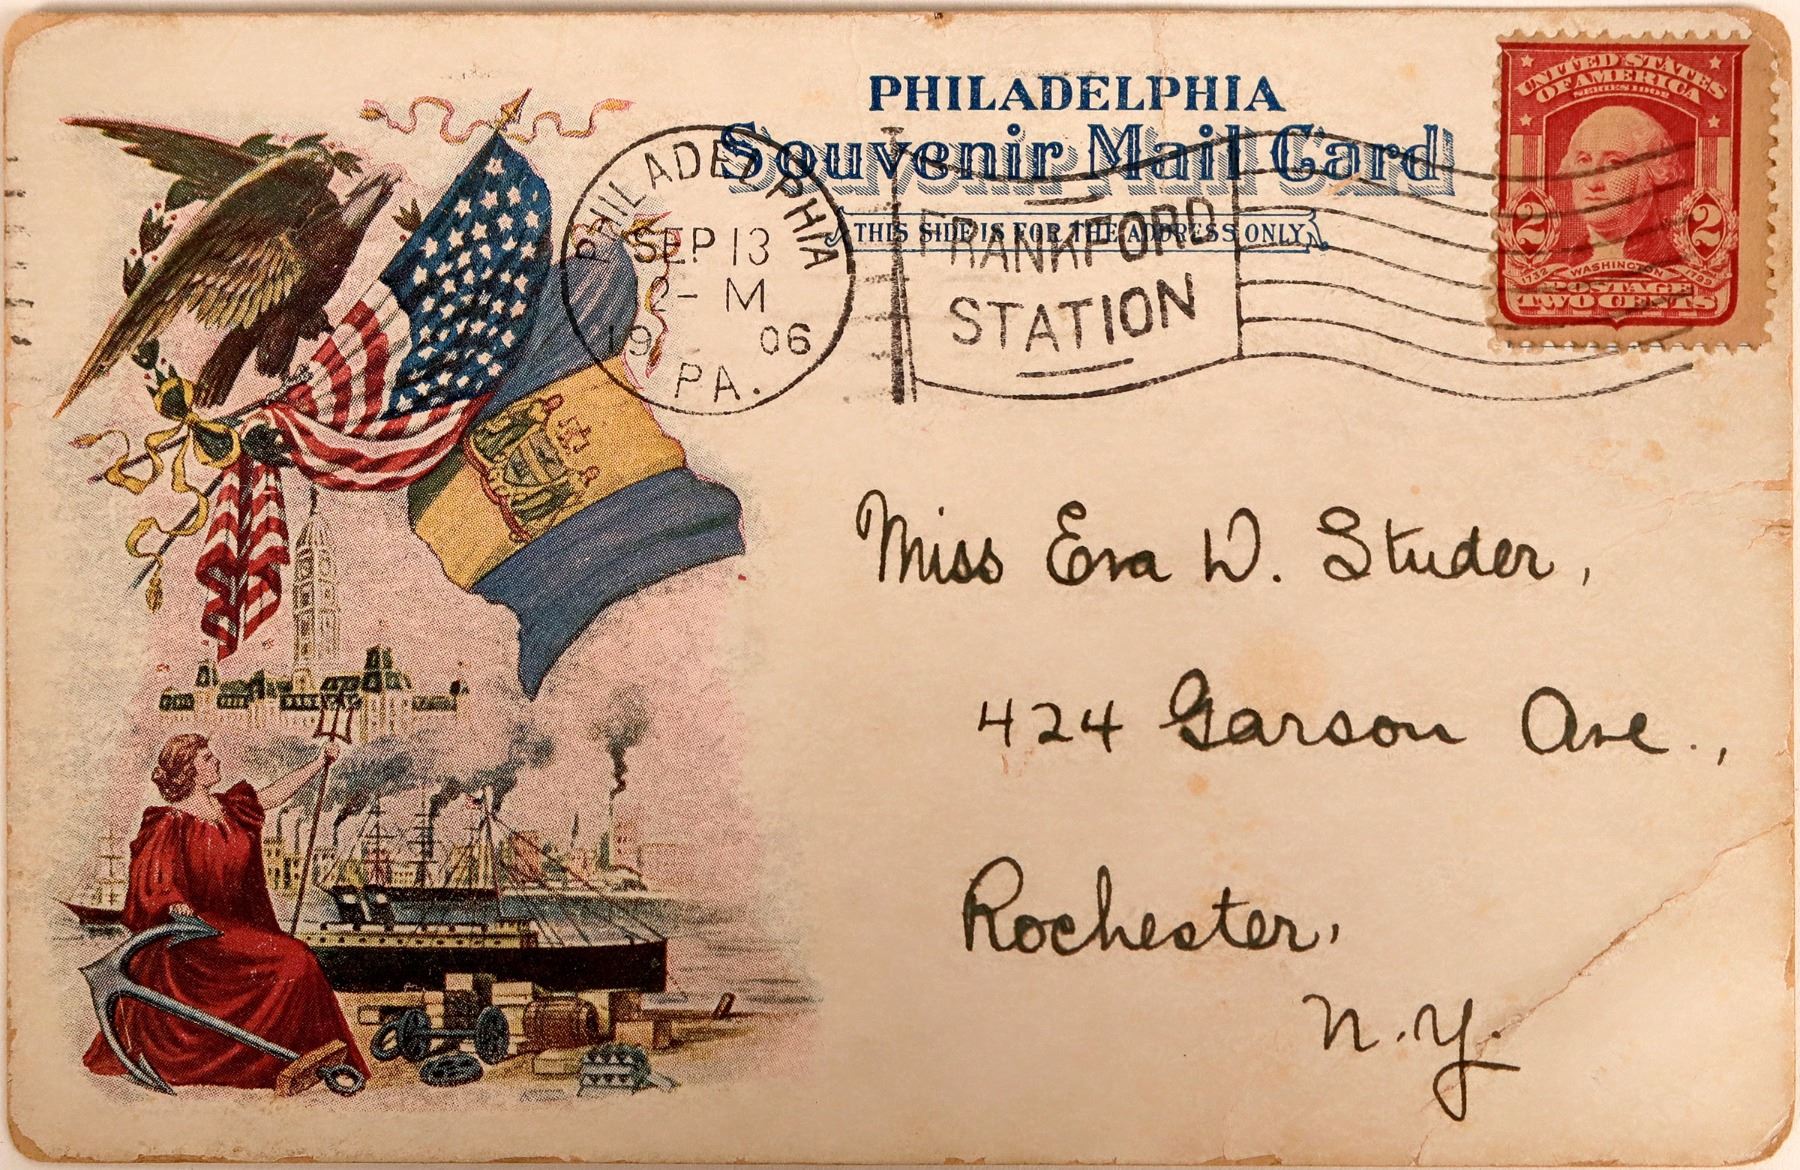 PHILADELPHIA
Souvenir Mail Card
THIS SIDE IS FOR THE ADDRESS ONLY
PHILADELPHIA
SEP 13
2- M
1906
PA.
FRANKFORD
STATION
UNITED STATES
OF AMERICA
SERIES 1902
2 2
1732 WASHINGTON 1799
POSTAGE
TWO CENTS
Miss Eva W. Studer,
424 Garson Ave.,
Rochester,
N.Y.